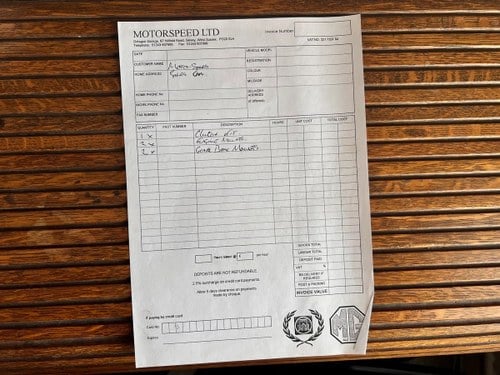 MOTORSPEED LTD
Invoice Number
DATE
VEHICLE MODEL
CUSTOMER NAME
REGISTRATION
HOME ADDRESS
COLOUR
MILEAGE
HOME PHONE No
DELIVERY ADDRESS
WORK PHONE No
(if different)
FAX NUMBER
QUANTITY PART NUMBER DESCRIPTION HOURS UNIT COST TOTAL COST
1 x Clutch Kit
2 x Engine Mounts
2 x Gear Box Mounts
GOODS TOTAL
LABOUR TOTAL
Hours labour @ £ per hour
DEPOSIT PAID
VAT %
DEPOSITS ARE NOT REFUNDABLE
RE-DELIVERY IF REQUIRED
2.5% surcharge for credit card payments
POST & PACKING
Allow 5 days clearance on payments
INVOICE VALUE
made by cheque
If paying by credit card
Card No
Expires
MG